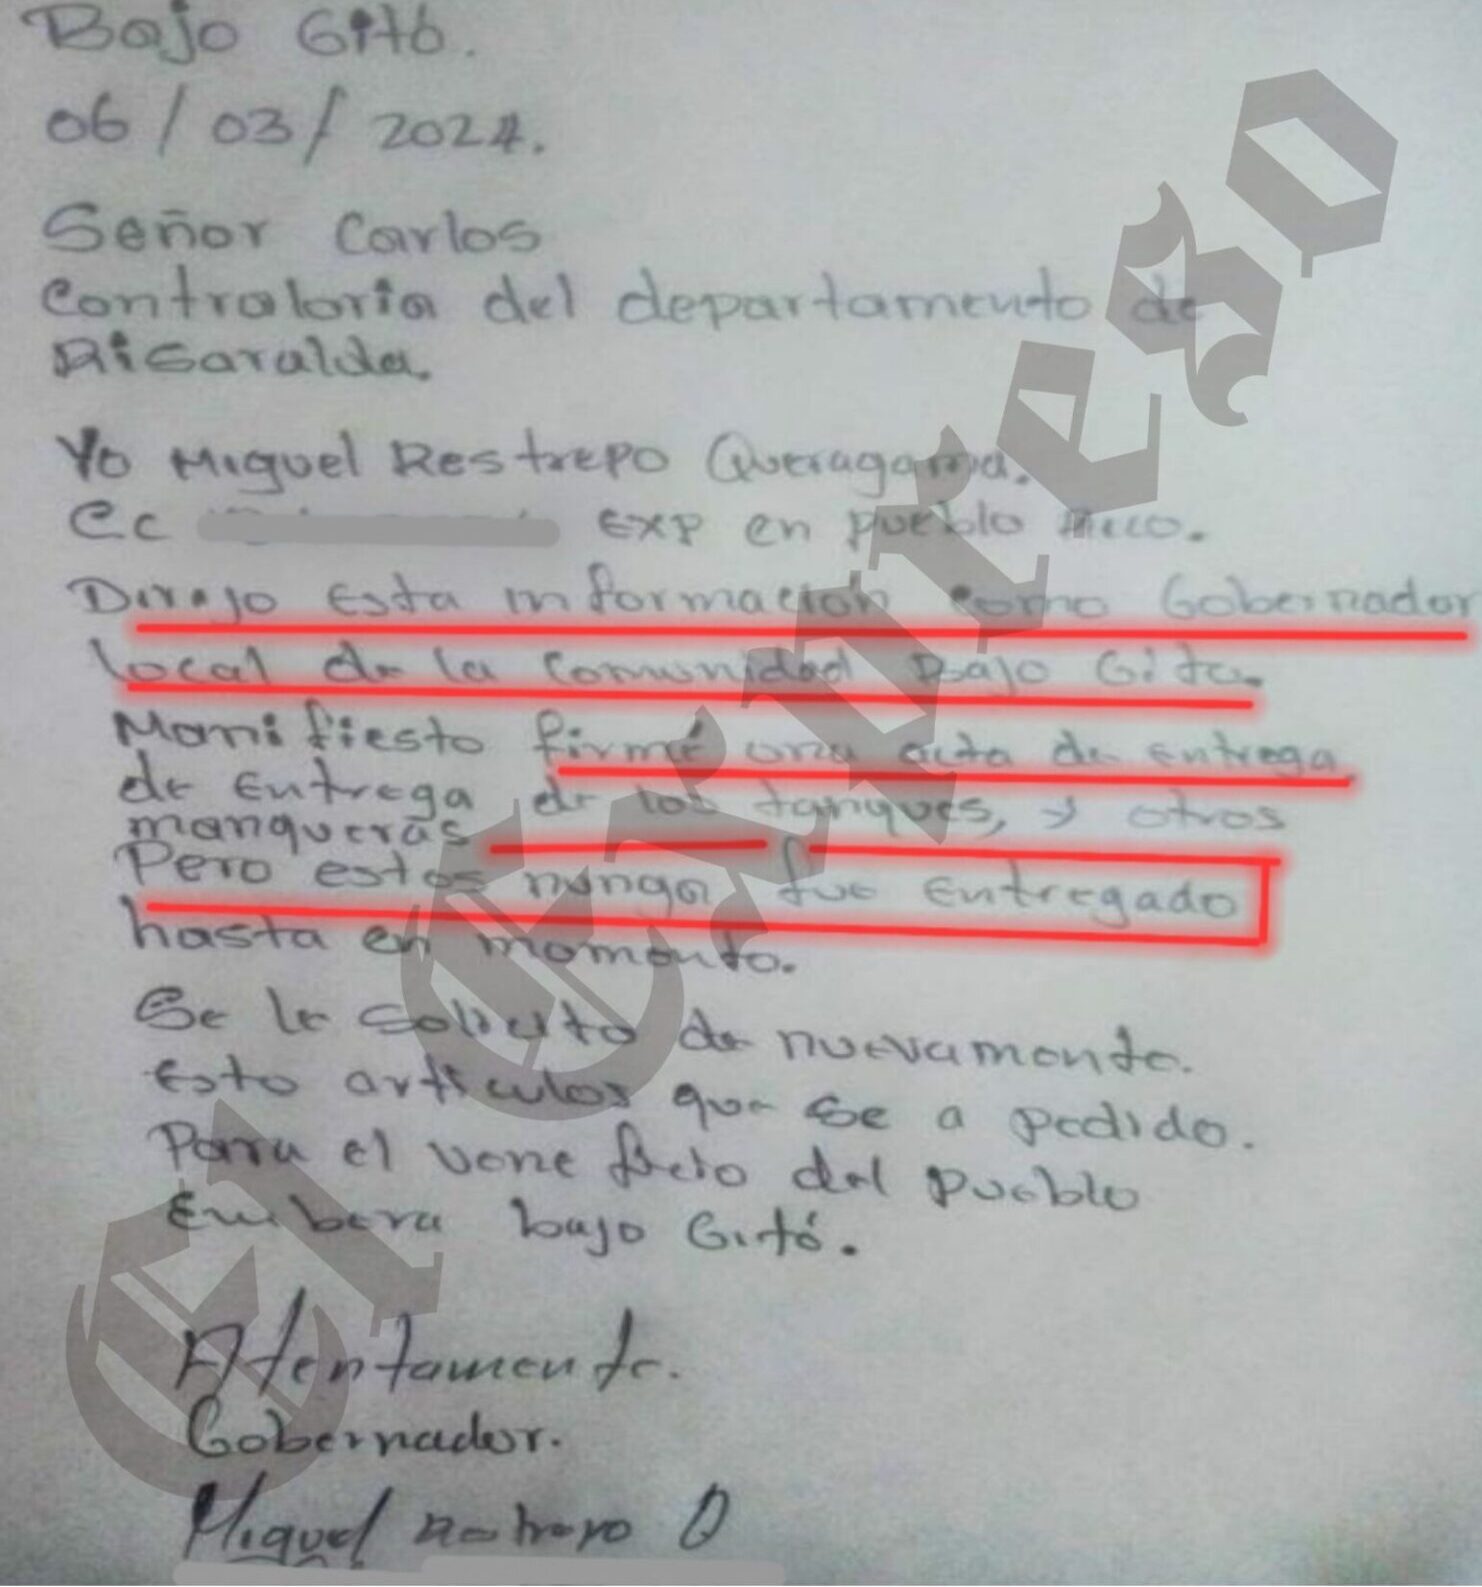 Bajo Gitó.
06 / 03 / 2024.
Señor Carlos
Contraloria del departamento de
Risaralda.
Yo Miguel Restrepo Queragama.
Cc EXP en Pueblo Rico.
Dirijo Esta informacion como Gobernador
local de la Comunidad Bajo Gito.
Manifiesto firmé una acta de entrega
de Entrega de los tanques, y otros
mangueras
Pero estos nunga fue Entregado
hasta en momento.
Se le solicito de nuevamente.
Esto articulos que se a pedido.
Para el vene ficio del Pueblo
Embera bajo Gitó.
Atentamente.
Gobernador.
Miguel Restrepo Q
El Expreso